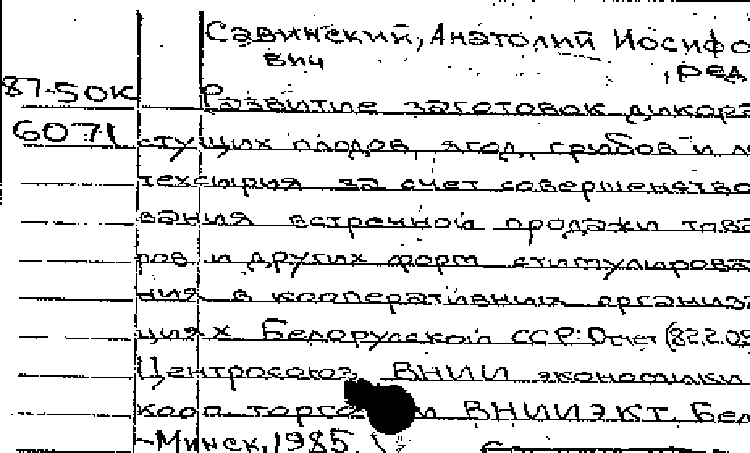 Савинский, Анатолий Иосифо
вич , ред
87-50К Развитие заготовок дикора
6071 стущих плодов, ягод, грибов и л
техсырья за счет совершенство
вания встречной продажи това
ров и других форм стимулирова
ния в кооперативных организа
циях Белорусской ССР: Отчет (82.2.09
Центросоюз ВНИИ экономики
кооп. торго и ВНИИЭКТ, Бел
-Минск, 1985.